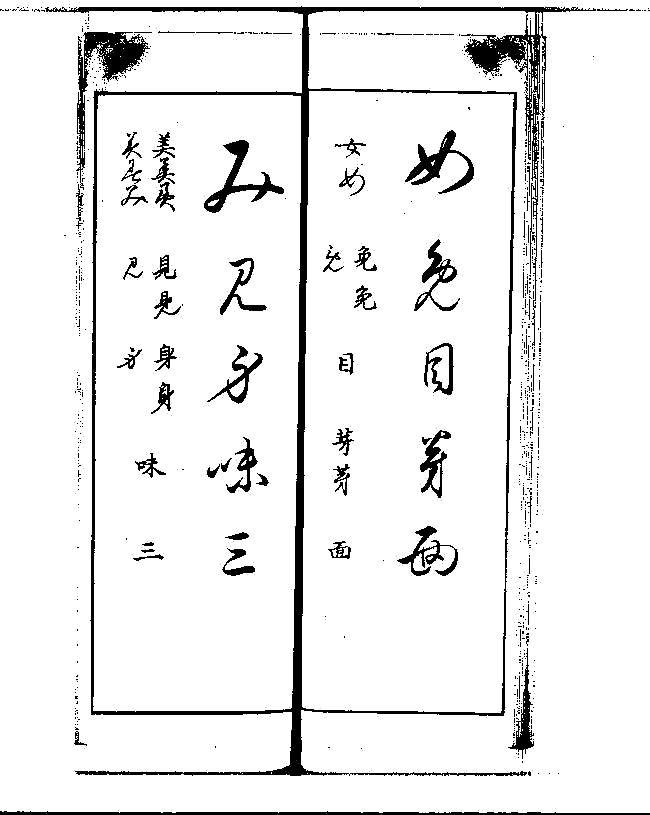 め免目芽面
女め
免免
免
目
芽芽
面
み見身味三
美美美
美美み
見見
見
身身
身
味
三